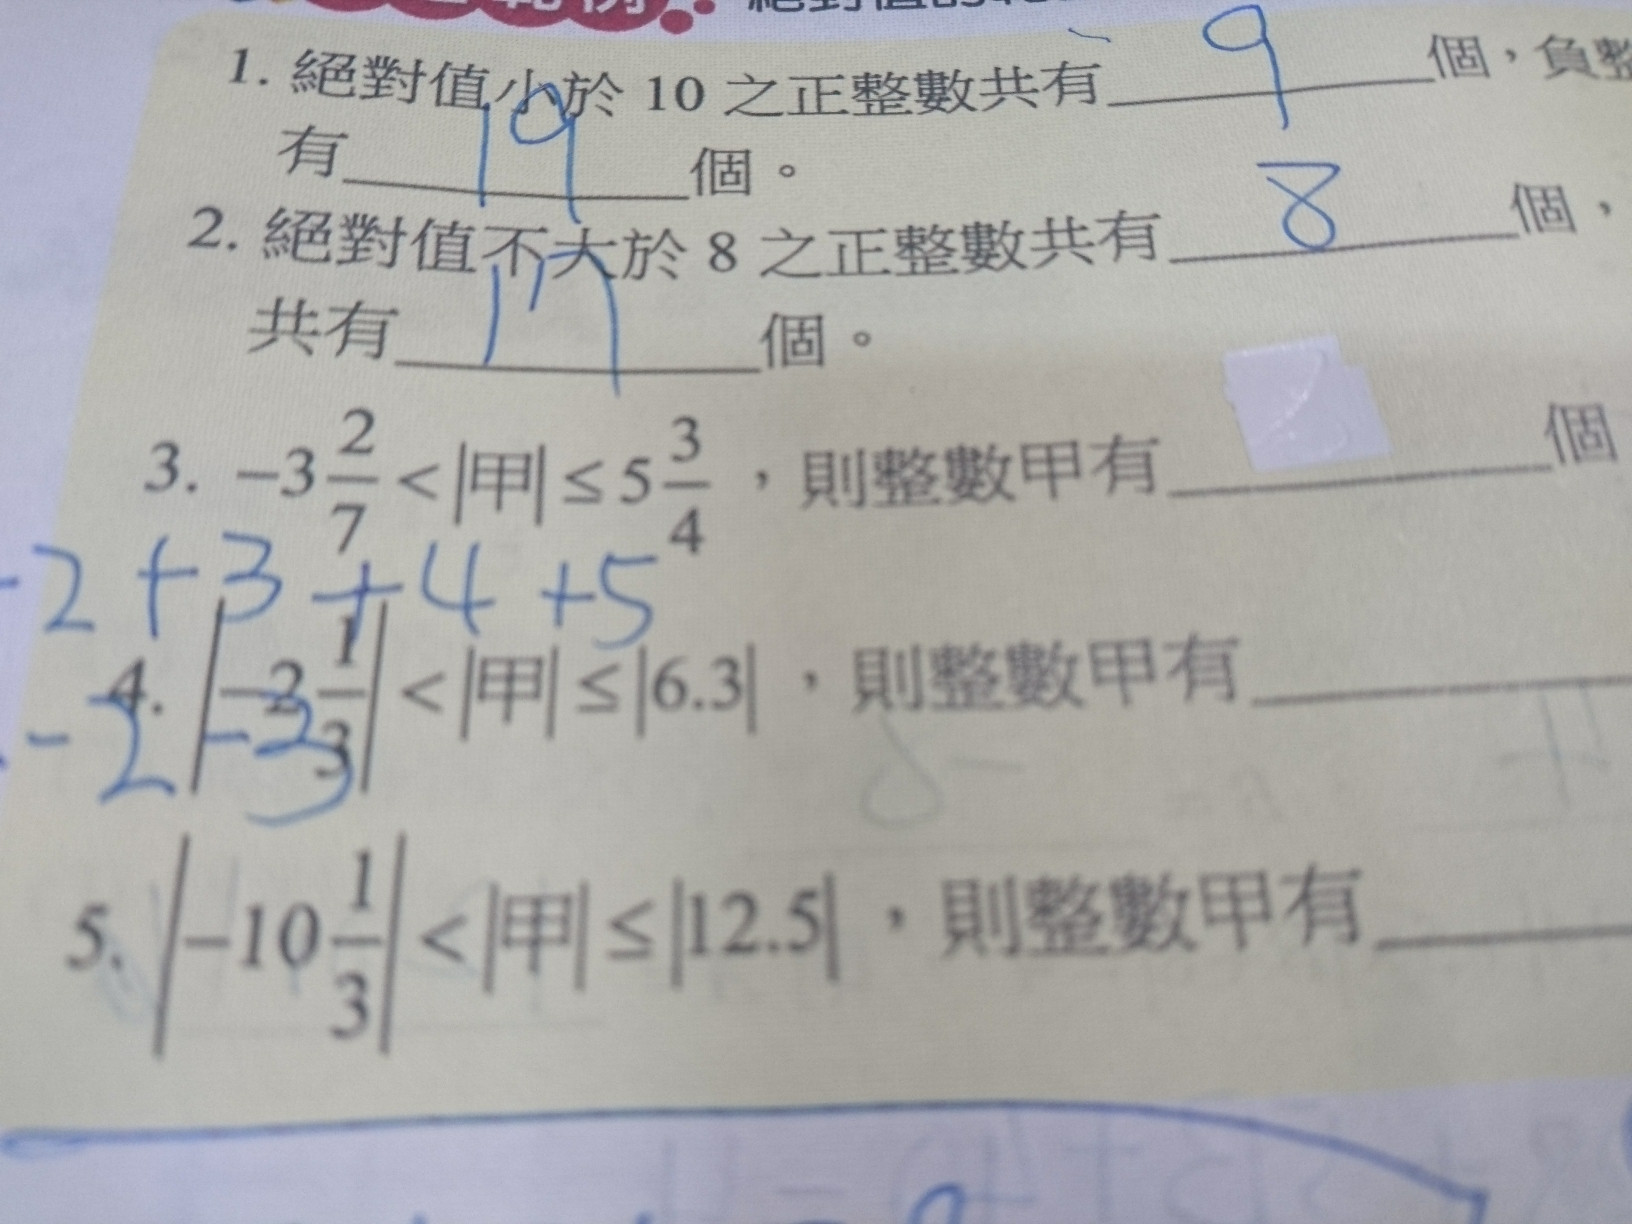 1. 絕對值小於 10 之正整數共有 9 個，負整
有 19 個。
2. 絕對值不大於 8 之正整數共有 8 個，
共有 17 個。
3. −3 2/7 < |甲| ≤ 5 3/4，則整數甲有 個
2 + 3 + 4 + 5
4. |−2 1/3| < |甲| ≤ |6.3|，則整數甲有
-2 -3
5. |−10 1/3| < |甲| ≤ |12.5|，則整數甲有